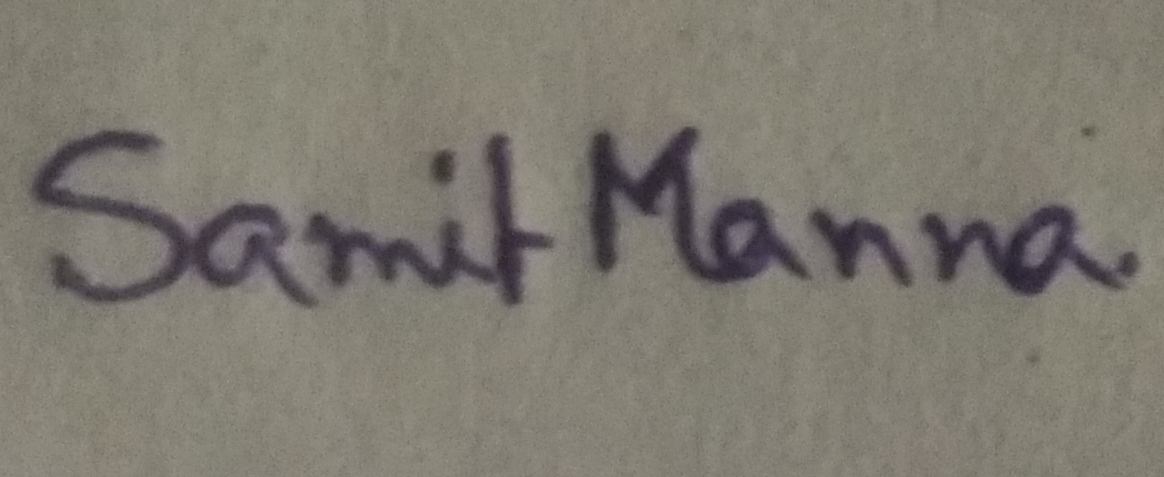 Samit Manna.